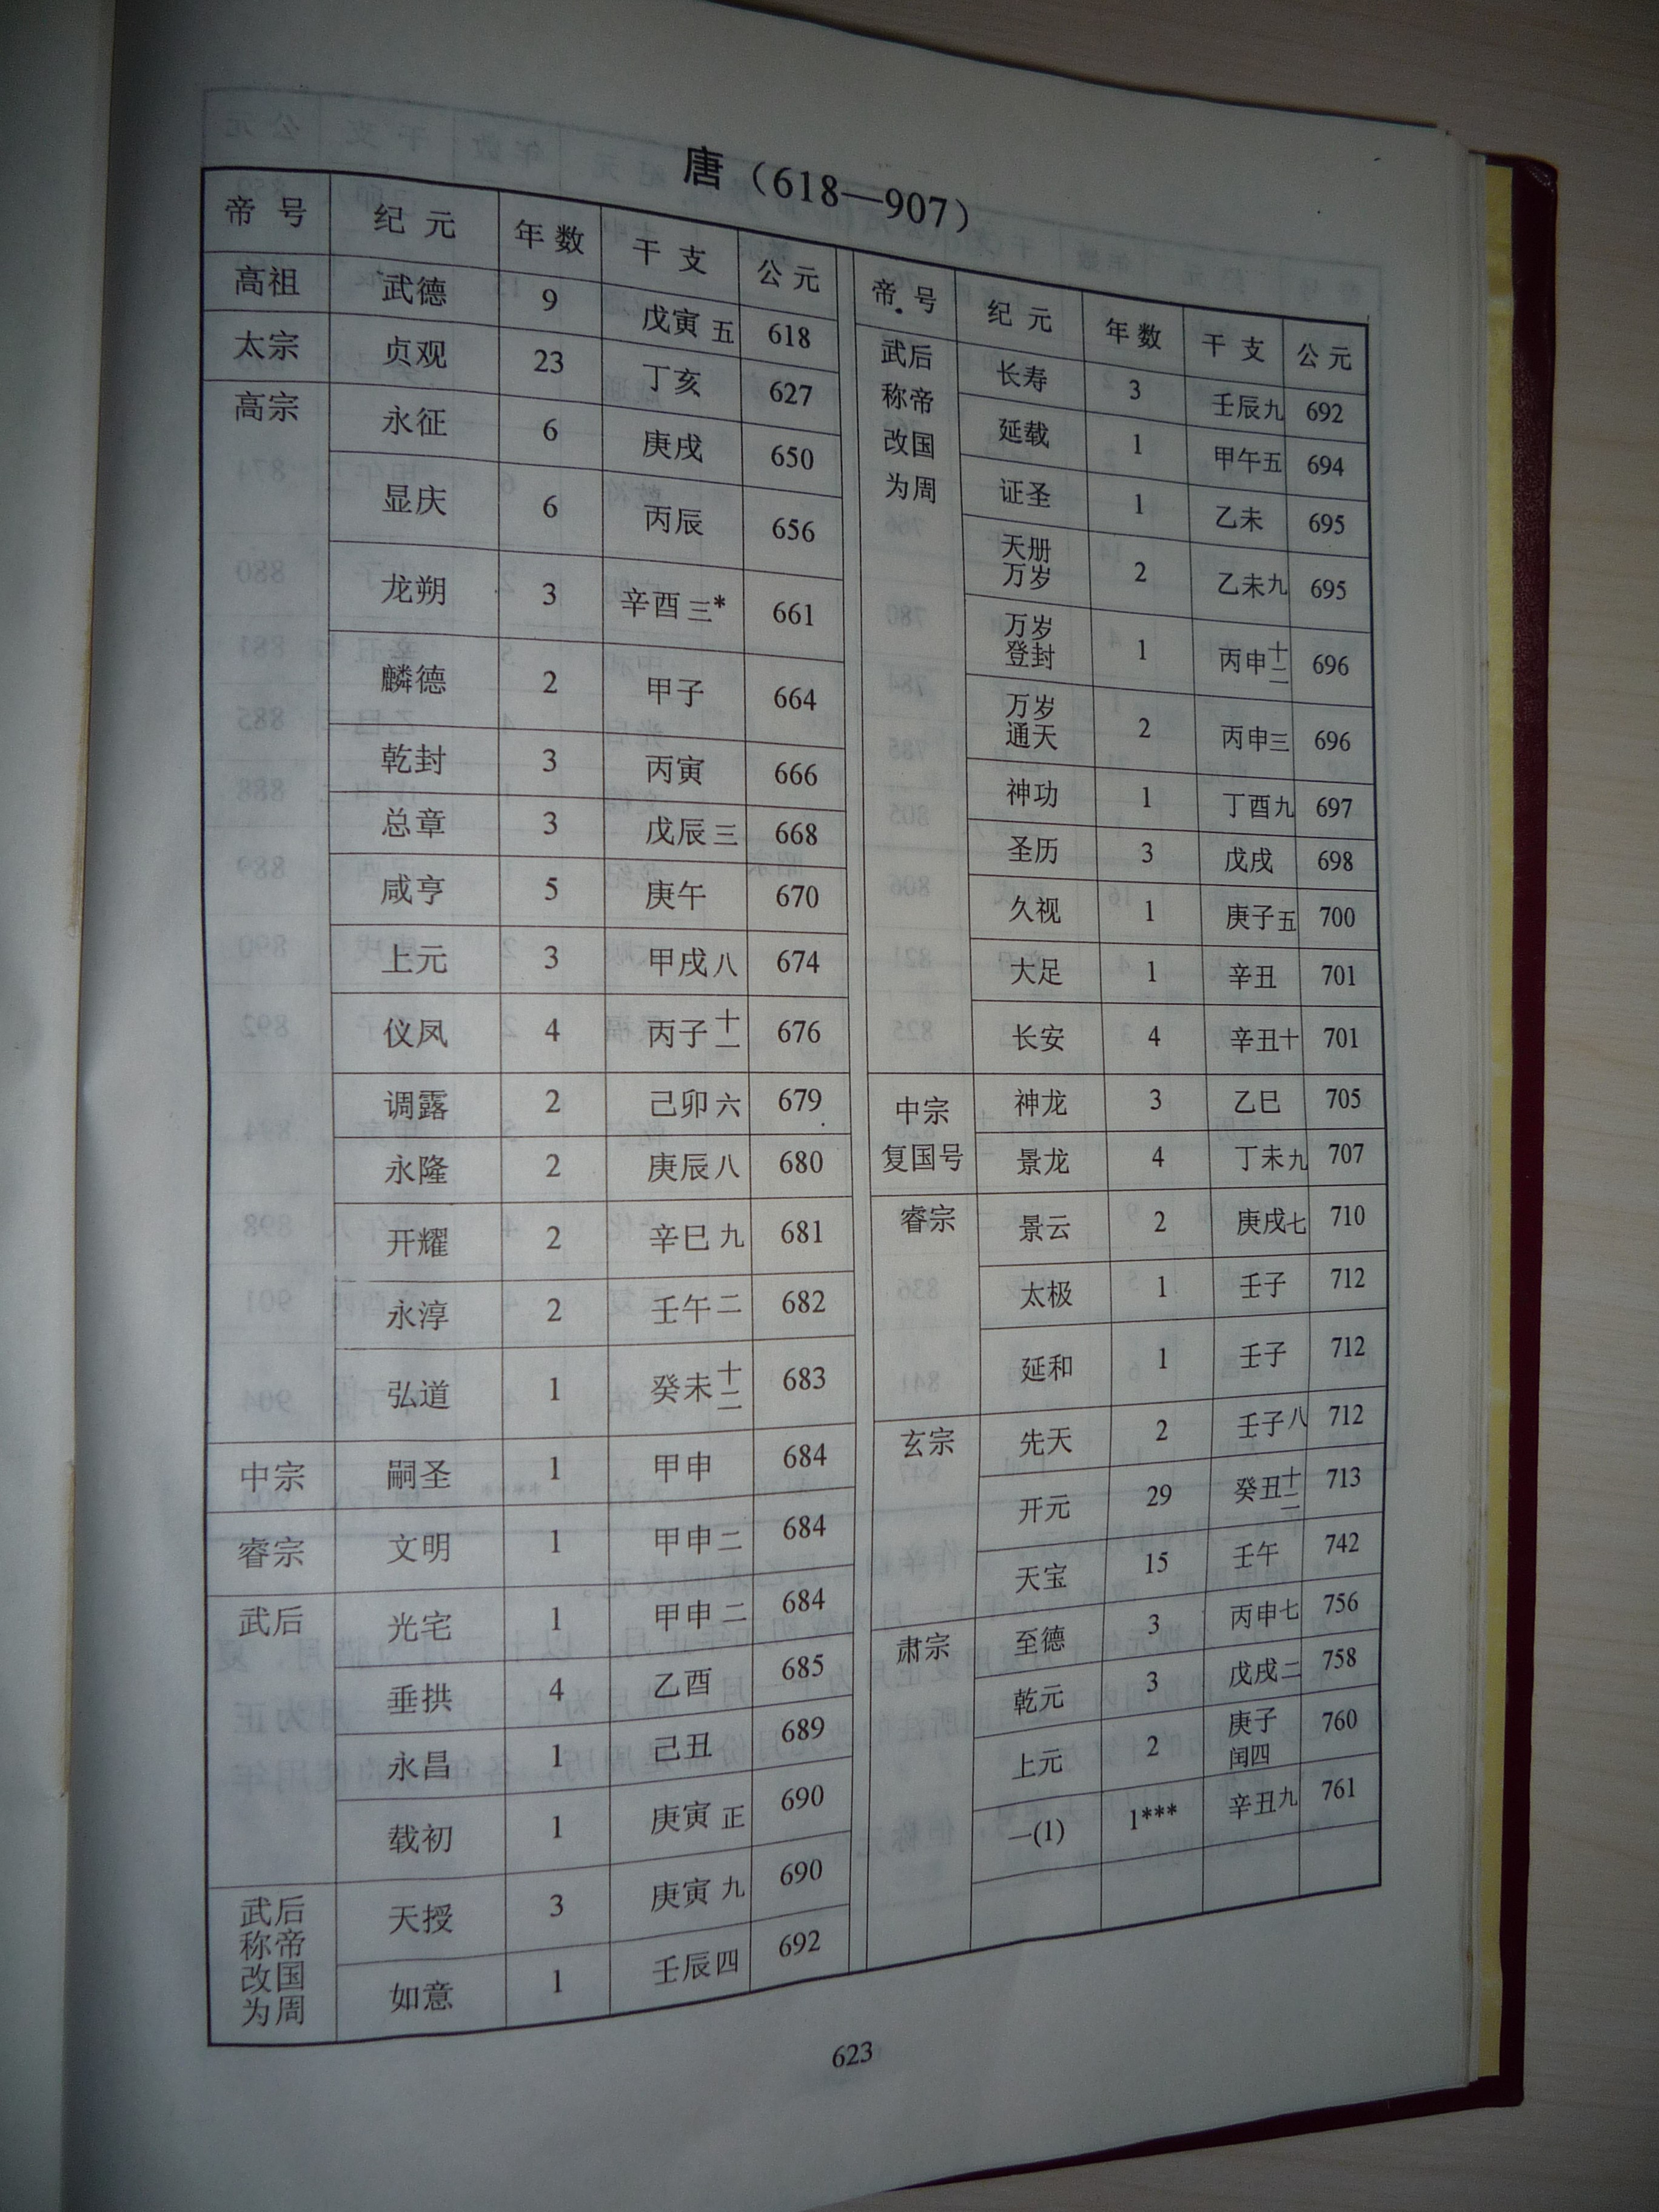 唐（618—907）
帝号 纪元 年数 干支 公元
高祖 武德 9 戊寅五 618
太宗 贞观 23 丁亥 627
高宗 永征 6 庚戌 650
显庆 6 丙辰 656
龙朔 3 辛酉三* 661
麟德 2 甲子 664
乾封 3 丙寅 666
总章 3 戊辰三 668
咸亨 5 庚午 670
上元 3 甲戌八 674
仪凤 4 丙子十一 676
调露 2 己卯六 679
永隆 2 庚辰八 680
开耀 2 辛巳九 681
永淳 2 壬午二 682
弘道 1 癸未十二 683
中宗 嗣圣 1 甲申 684
睿宗 文明 1 甲申二 684
武后 光宅 1 甲申二 684
垂拱 4 乙酉 685
永昌 1 己丑 689
载初 1 庚寅正 690
武后称帝改国为周 天授 3 庚寅九 690
如意 1 壬辰四 692
帝号 纪元 年数 干支 公元
武后称帝改国为周 长寿 3 壬辰九 692
延载 1 甲午五 694
证圣 1 乙未 695
天册万岁 2 乙未九 695
万岁登封 1 丙申十二 696
万岁通天 2 丙申三 696
神功 1 丁酉九 697
圣历 3 戊戌 698
久视 1 庚子五 700
大足 1 辛丑 701
长安 4 辛丑十 701
中宗复国号 神龙 3 乙巳 705
景龙 4 丁未九 707
睿宗 景云 2 庚戌七 710
太极 1 壬子 712
延和 1 壬子 712
玄宗 先天 2 壬子八 712
开元 29 癸丑十二 713
天宝 15 壬午 742
肃宗 至德 3 丙申七 756
乾元 3 戊戌二 758
上元 2 庚子闰四 760
—(1) 1*** 辛丑九 761
623